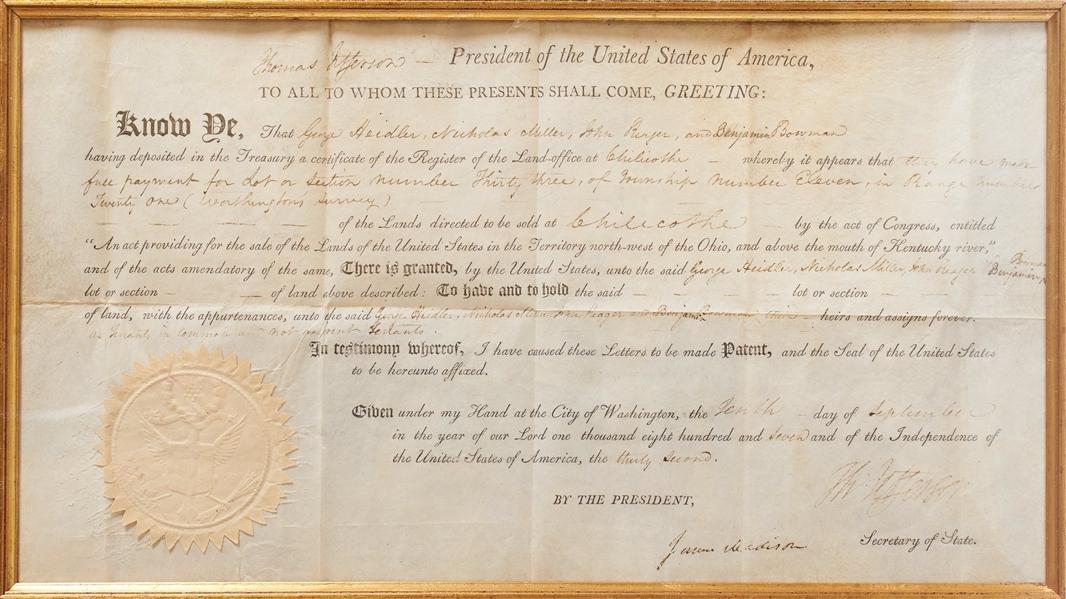 Thomas Jefferson — President of the United States of America,
TO ALL TO WHOM THESE PRESENTS SHALL COME, GREETING:
Know Ye, That George Heidler, Nicholas Miller, John Reager, and Benjamin Bowman
having deposited in the Treasury a certificate of the Register of the Land-office at Chilicothe — whereby it appears that they have made
full payment for Lot or Section number Thirty three, of Township number Eleven, in Range number
Twenty one (Worthingtons Survey)
of the Lands directed to be sold at Chilicothe — by the act of Congress, entitled
“An act providing for the sale of the Lands of the United States in the Territory north-west of the Ohio, and above the mouth of Kentucky river,”
and of the acts amendatory of the same, There is granted, by the United States, unto the said George Heidler, Nicholas Miller, John Reager Benjamin Bowman
lot or section — — of land above described: To have and to hold the said — — — lot or section —
of land, with the appurtenances, unto the said George Heidler, Nicholas Miller John Reager and Benjamin Bowman their — heirs and assigns forever.
as tenants in common and not as joint tenants.
In testimony whereof, I have caused these Letters to be made Patent, and the Seal of the United States
to be hereunto affixed.
Given under my Hand at the City of Washington, the Tenth — day of September
in the year of our Lord one thousand eight hundred and Seven and of the Independence of
the United States of America, the thirty Second.
Th: Jefferson
BY THE PRESIDENT,
James Madison Secretary of State.